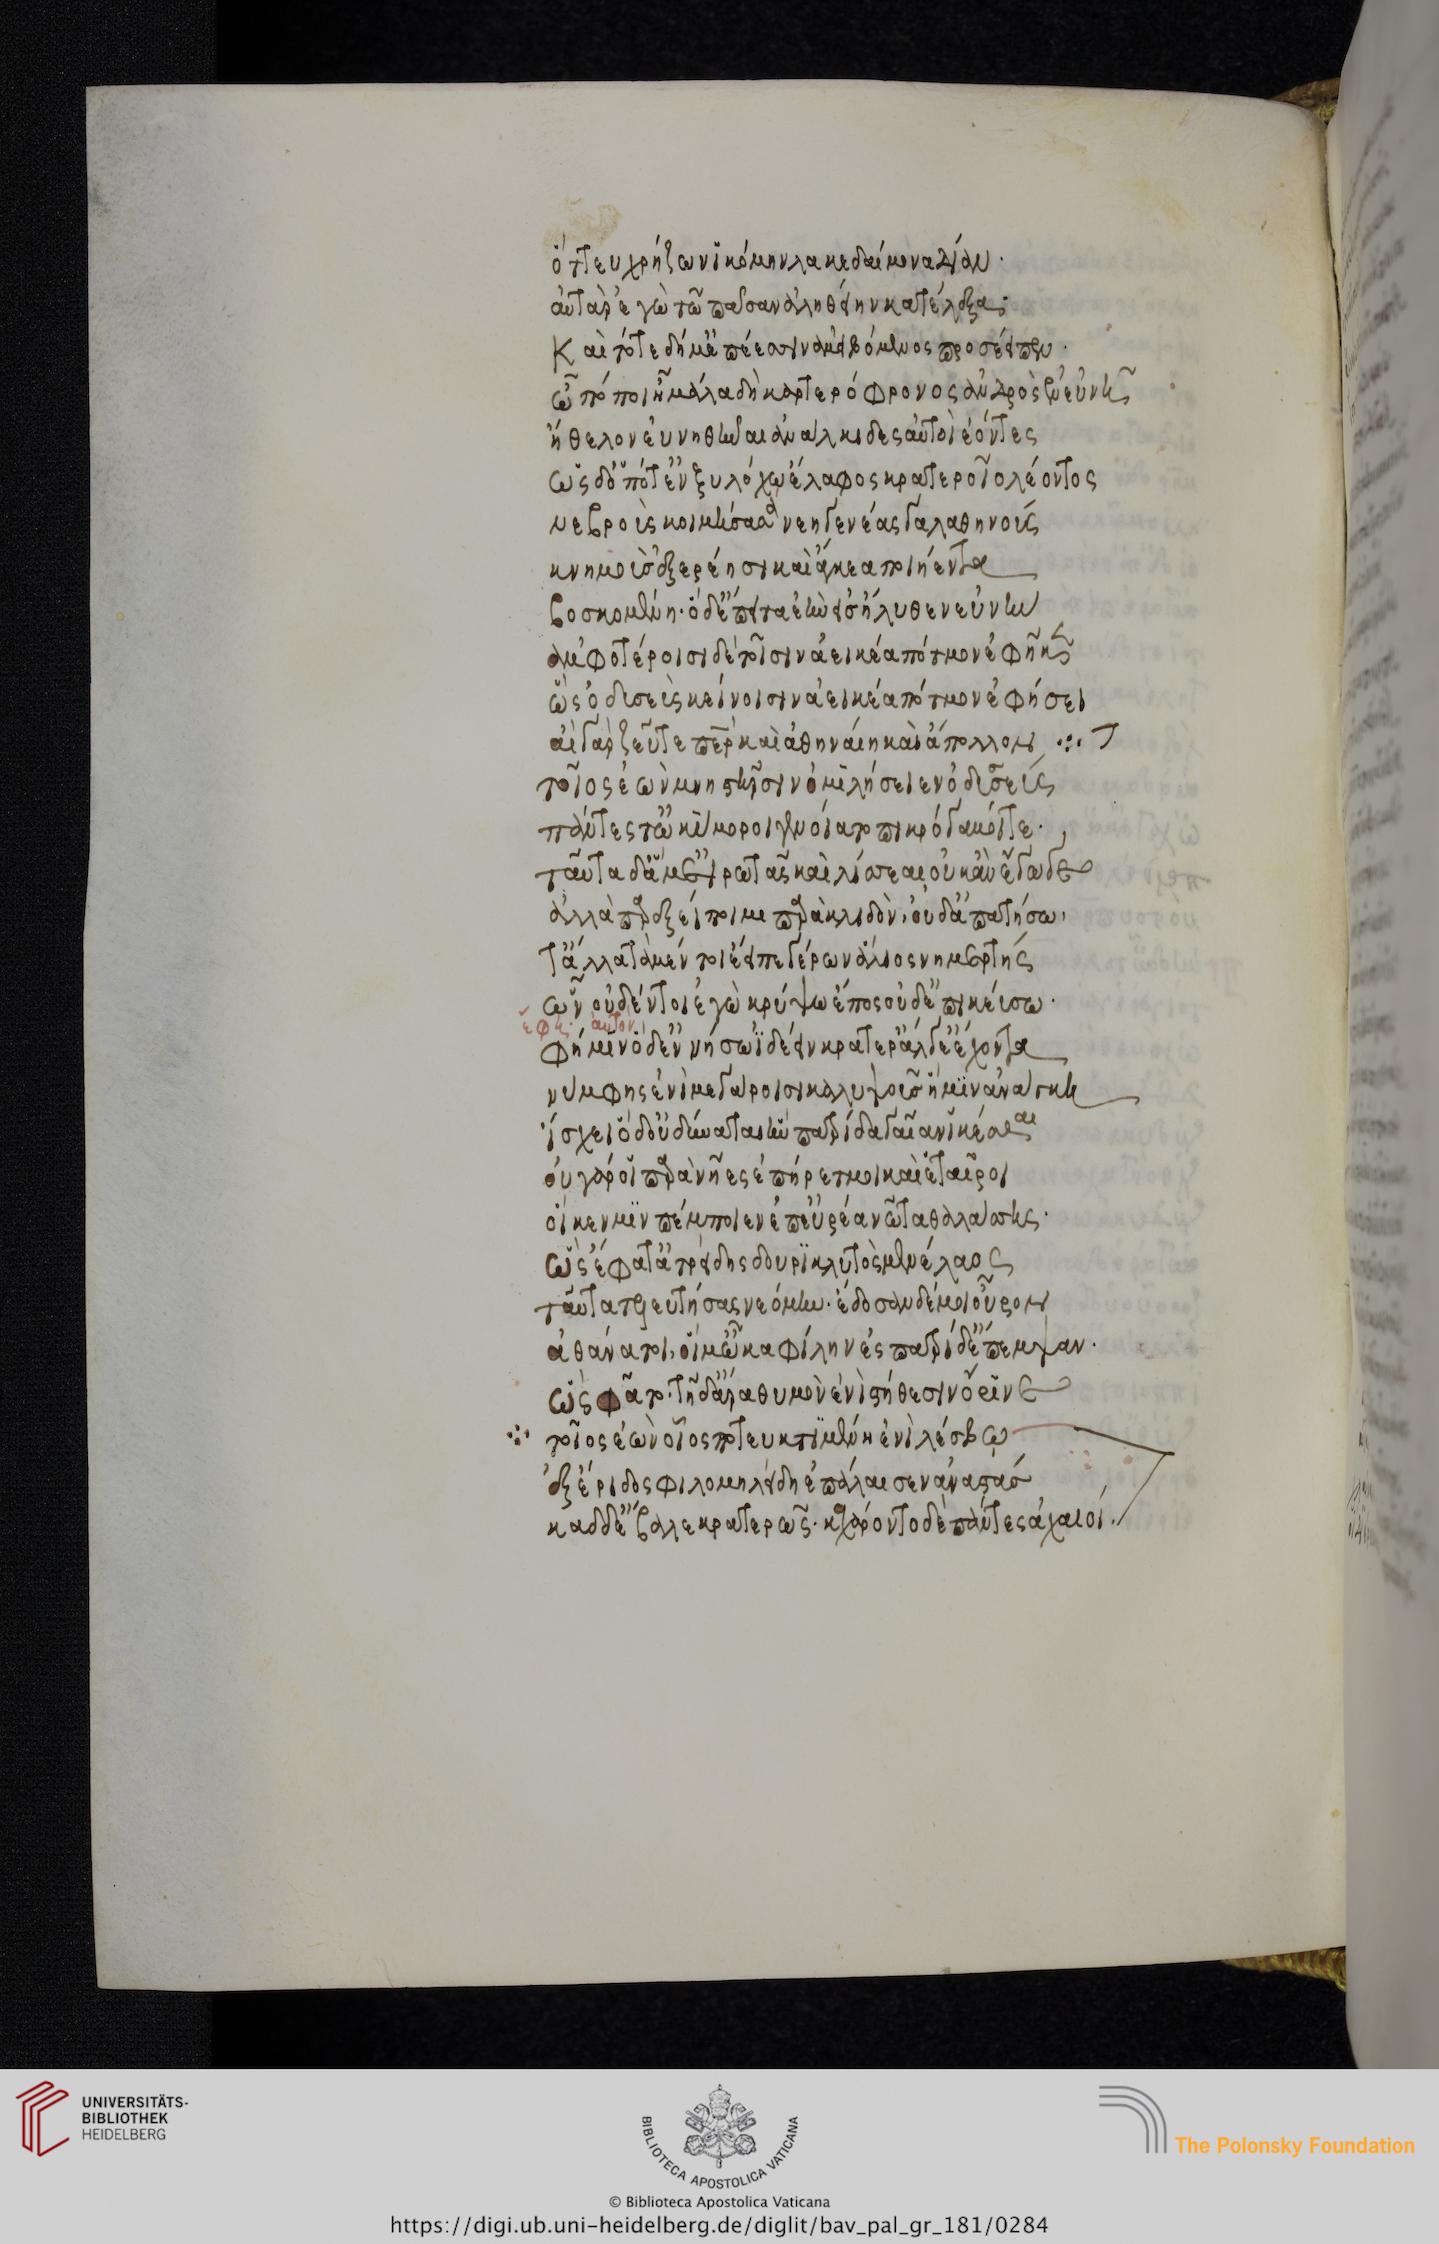 ὅττευ χρήζων ἱκόμην λακεδαίμονα δῖαν·
αὐτὰρ ἐγὼ τῶ πᾶσαν ἀληθείην κατέλεξα·
Καὶ τότε δή μ' ἐπέεσσιν ἀμειβόμενος προσέειπεν·
ὢ πόποι ἦ μάλα δὴ καρτερόφρονος ἀνδρὸς ἐν εὐνῆ
ἤθελον εὐνηθῆναι ἀνάλκιδες αὐτοὶ ἐόντες
ὡς δ' ὁπότ' ἐν ξυλόχω ἔλαφος κρατεροῖο λέοντος
νεβροὺς κοιμήσασα νεηγενέας γαλαθηνούς
κνημοὺς ἐξερέησι καὶ ἄγκεα ποιήεντα
βοσκομένη· ὁ δ' ἔπειτα ἑὴν εἰσήλυθεν εὐνήν
ἀμφοτέροισι δὲ τοῖσιν ἀεικέα πότμον ἐφῆκεν
ὣς ὀδυσεὺς κείνοισιν ἀεικέα πότμον ἐφήσει
αἲ γὰρ ζεῦ τε πάτερ καὶ ἀθηναίη καὶ ἄπολλον
τοῖος ἐὼν μνηστῆρσιν ὁμιλήσειεν ὀδυσσεύς
πάντες τ' ὠκύμοροι γενοίατο πικρόγαμοί τε·
ταῦτα δ' ἅ μ' εἰρωτᾶς καὶ λίσσεαι οὐκ ἂν ἔγωγε
ἀλλὰ παρὲξ εἴποιμι παρακλιδὸν, οὐδ' ἀπατήσω·
τἄλλα τὰ μέν τοι ἔειπε γέρων ἅλιος νημερτής
ὧν οὐδέν τοι ἐγὼ κρύψω ἔπος οὐδ' ἐπικεύσω·
ἔφη αὐτὸν
φῆ μιν ὅδ' ἐν νήσω ἰδέειν κρατέρ' ἄλγε' ἔχοντα
νύμφης ἐνὶ μεγάροισι καλυψοῦς ἥ μιν ἀνάγκη
ἴσχει ὁ δ' οὐ δύναται ἣν πατρίδα γαῖαν ἱκέσθαι
οὐ γάρ οἱ πάρα νῆες ἐπήρετμοι καὶ ἑταῖροι
οἵ κέν μιν πέμποιεν ἐπ' εὐρέα νῶτα θαλάσσης·
ὣς ἔφατ' ἀτρείδης δουρὶ κλυτὸς μενέλαος
ταῦτα τελευτήσας νεόμην· ἔδοσαν δέ μοι οὖρον
ἀθάνατοι, οἵ μ' ὦκα φίλην ἐς πατρίδ' ἔπεμψαν·
ὣς φάτο· τῆ δ' ἄρα θυμὸν ἐνὶ στήθεσιν ὄρινε
τοῖος ἐὼν οἷός ποτ' ἐυκτιμένη ἐνὶ λέσβω
ἐξ ἔριδος φιλομηλείδη ἐπάλαισεν ἀναστάς
καδδ' ἔβαλε κρατερῶς· κεχάροντο δὲ πάντες ἀχαιοί·
UNIVERSITÄTS-
BIBLIOTHEK
HEIDELBERG
BIBLIOTECA APOSTOLICA VATICANA
The Polonsky Foundation
© Biblioteca Apostolica Vaticana
https://digi.ub.uni-heidelberg.de/diglit/bav_pal_gr_181/0284